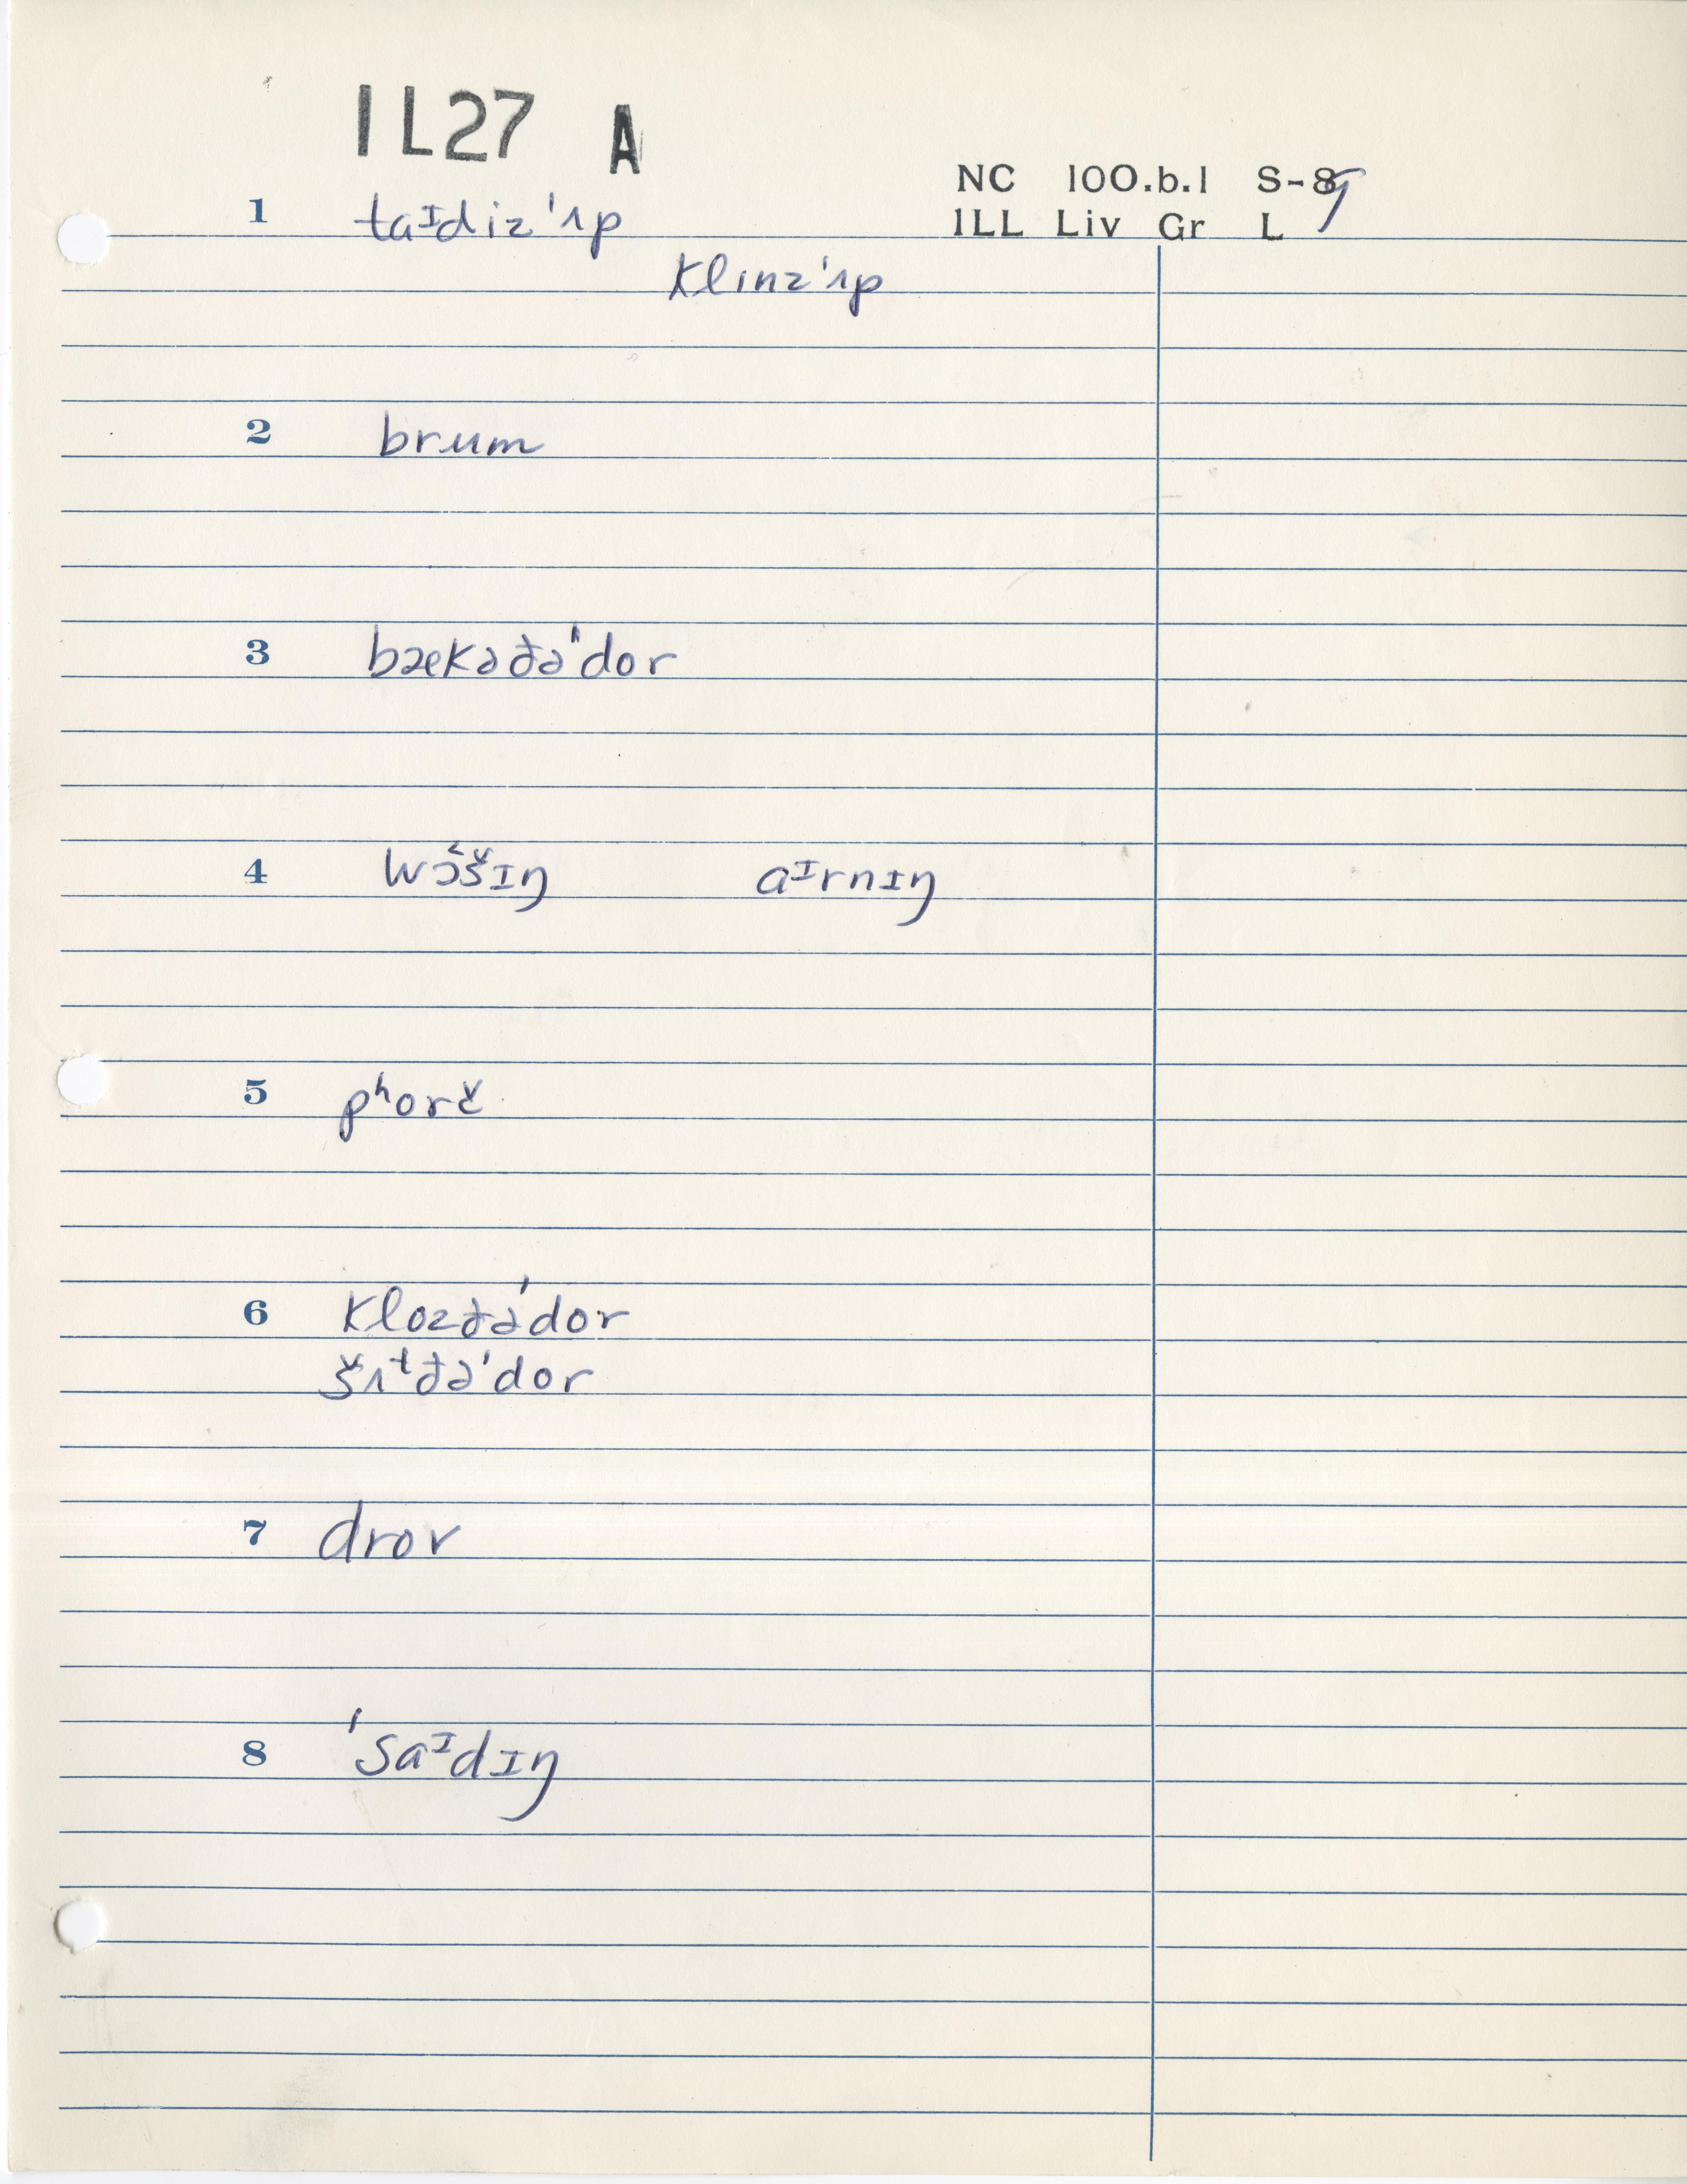 IL27 A
NC 100.b.1 S-89
ILL Liv Gr L
1 taᶦdiz'ʌp
klinz'ʌp
2 brum
3 bækəðə"dor
4 wɔ̌šɪŋ aᶦrnɪŋ
5 pʰorč
6 klozðə'dor
šʌᵗðə'dor
7 dror
8 'saᶦdɪŋ